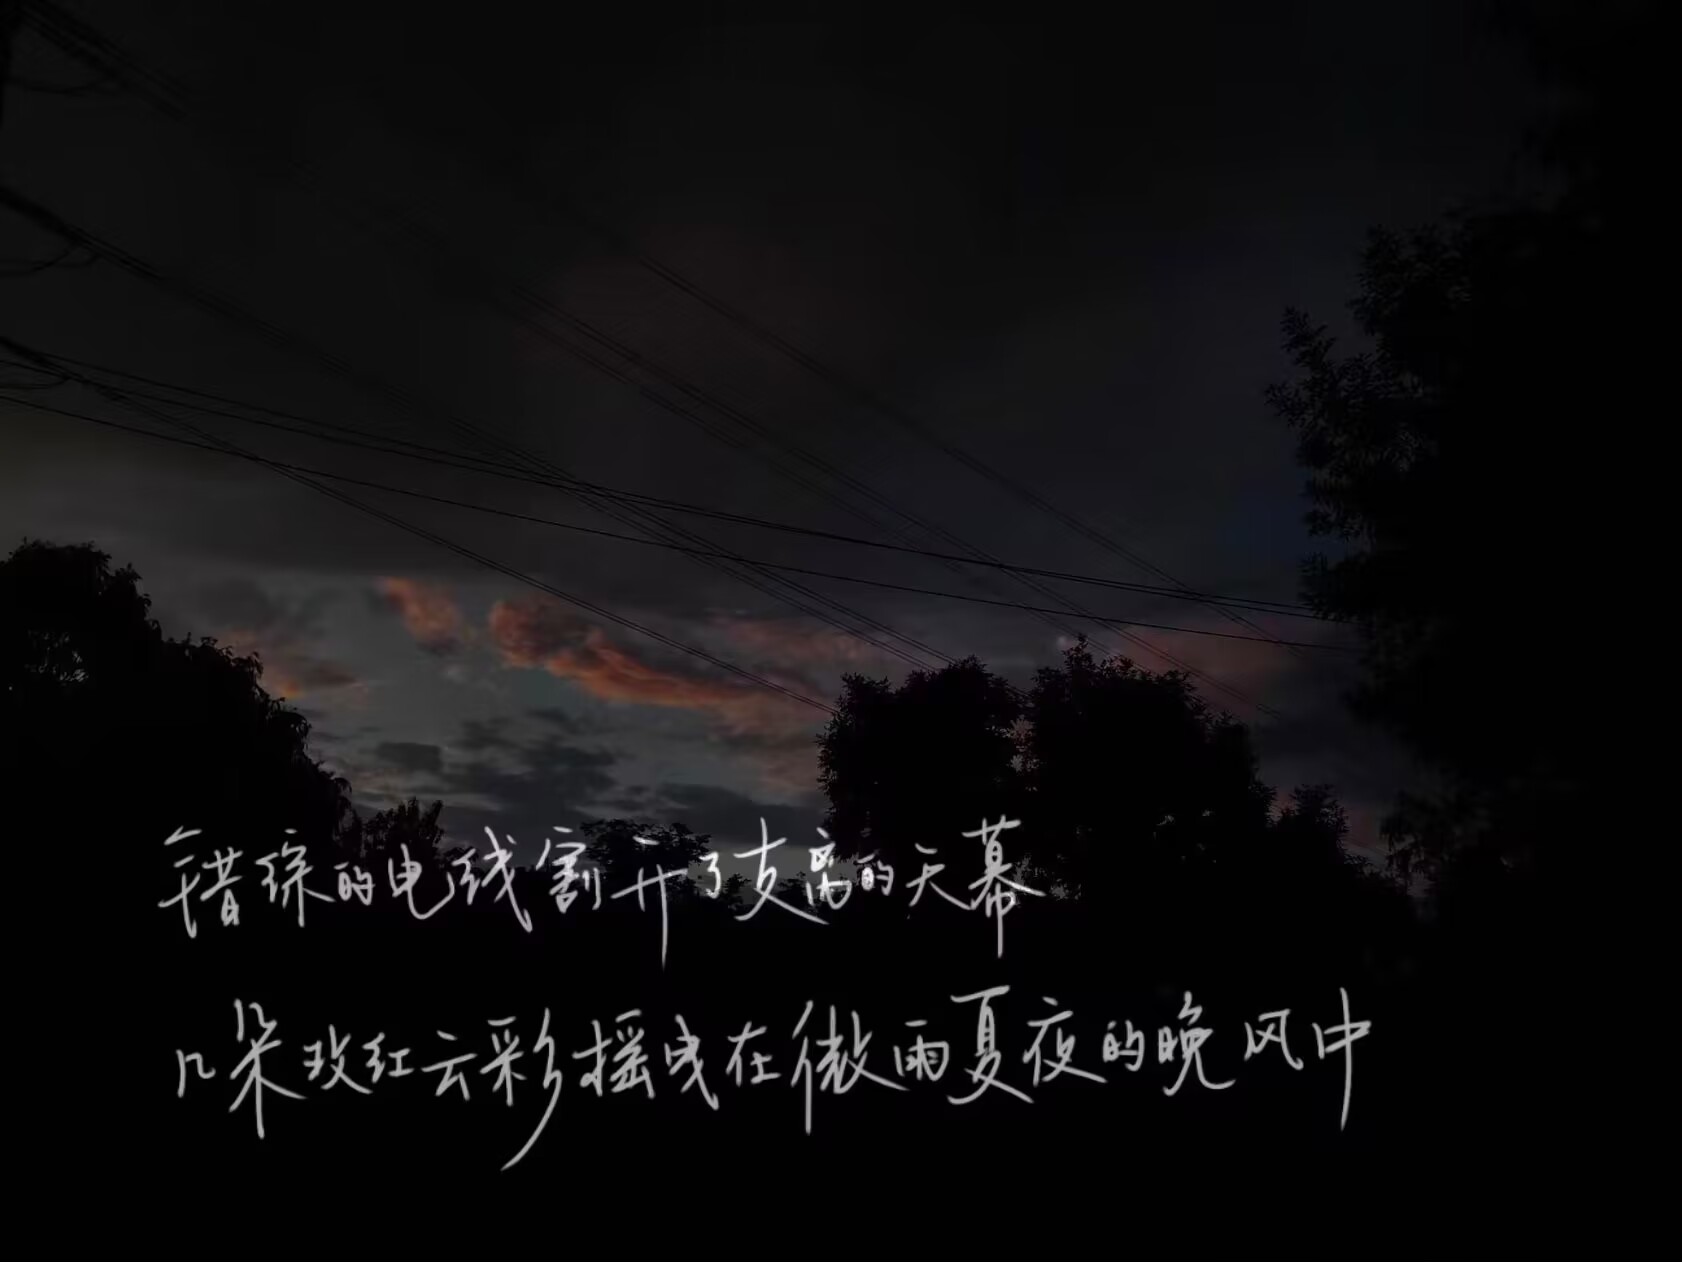 错综的电线割开了支离的天幕
几朵玫红云彩摇曳在微雨夏夜的晚风中